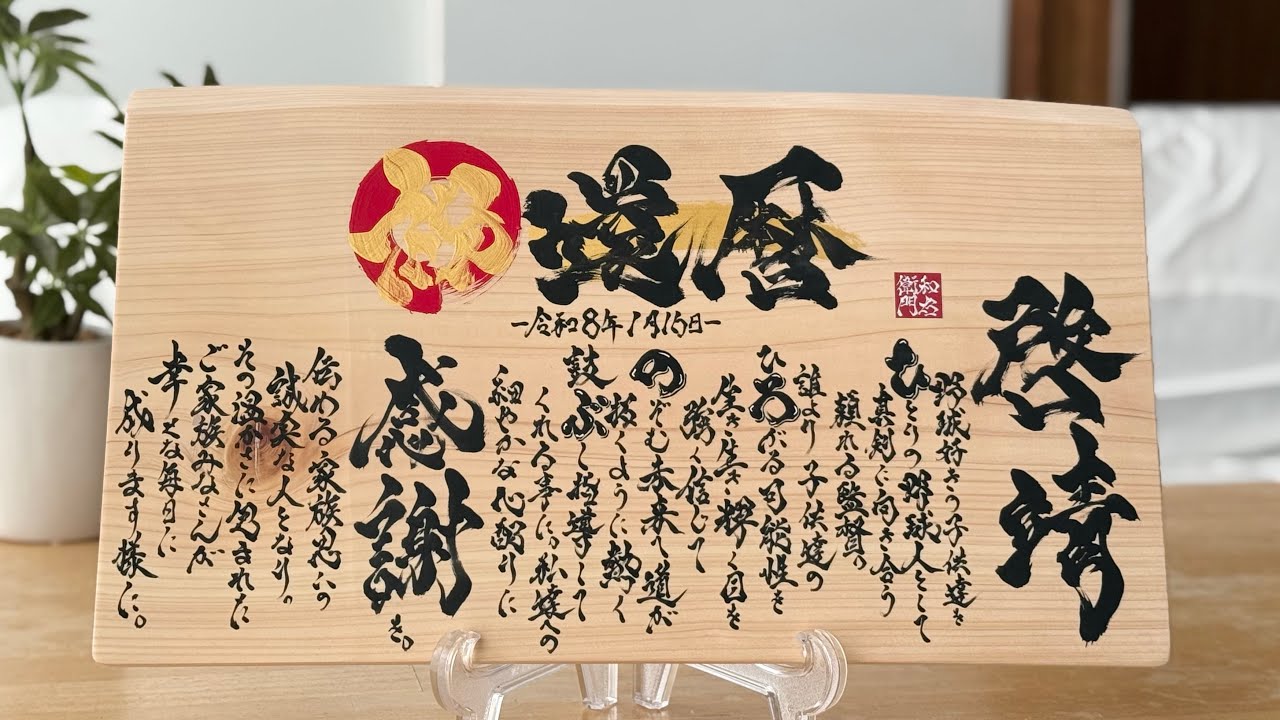 祝 還暦
-令和8年1月16日-
啓靖
野球好きの子供達を
ひとりの野球人として
真剣に向き合う
頼れる監督。
誰より子供達の
ひろがる可能性を
生き生き輝く目を
強く信じて
のぞむ未来へ道が
拓くように熱く
鼓ぶし指導して
くれる事に。私達への
細やかな心配りに
感謝を。
伝わる家族思いの
誠実な人となり。
その温かさに包まれた
ご家族みなさんが
幸せな毎日に
成ります様に。